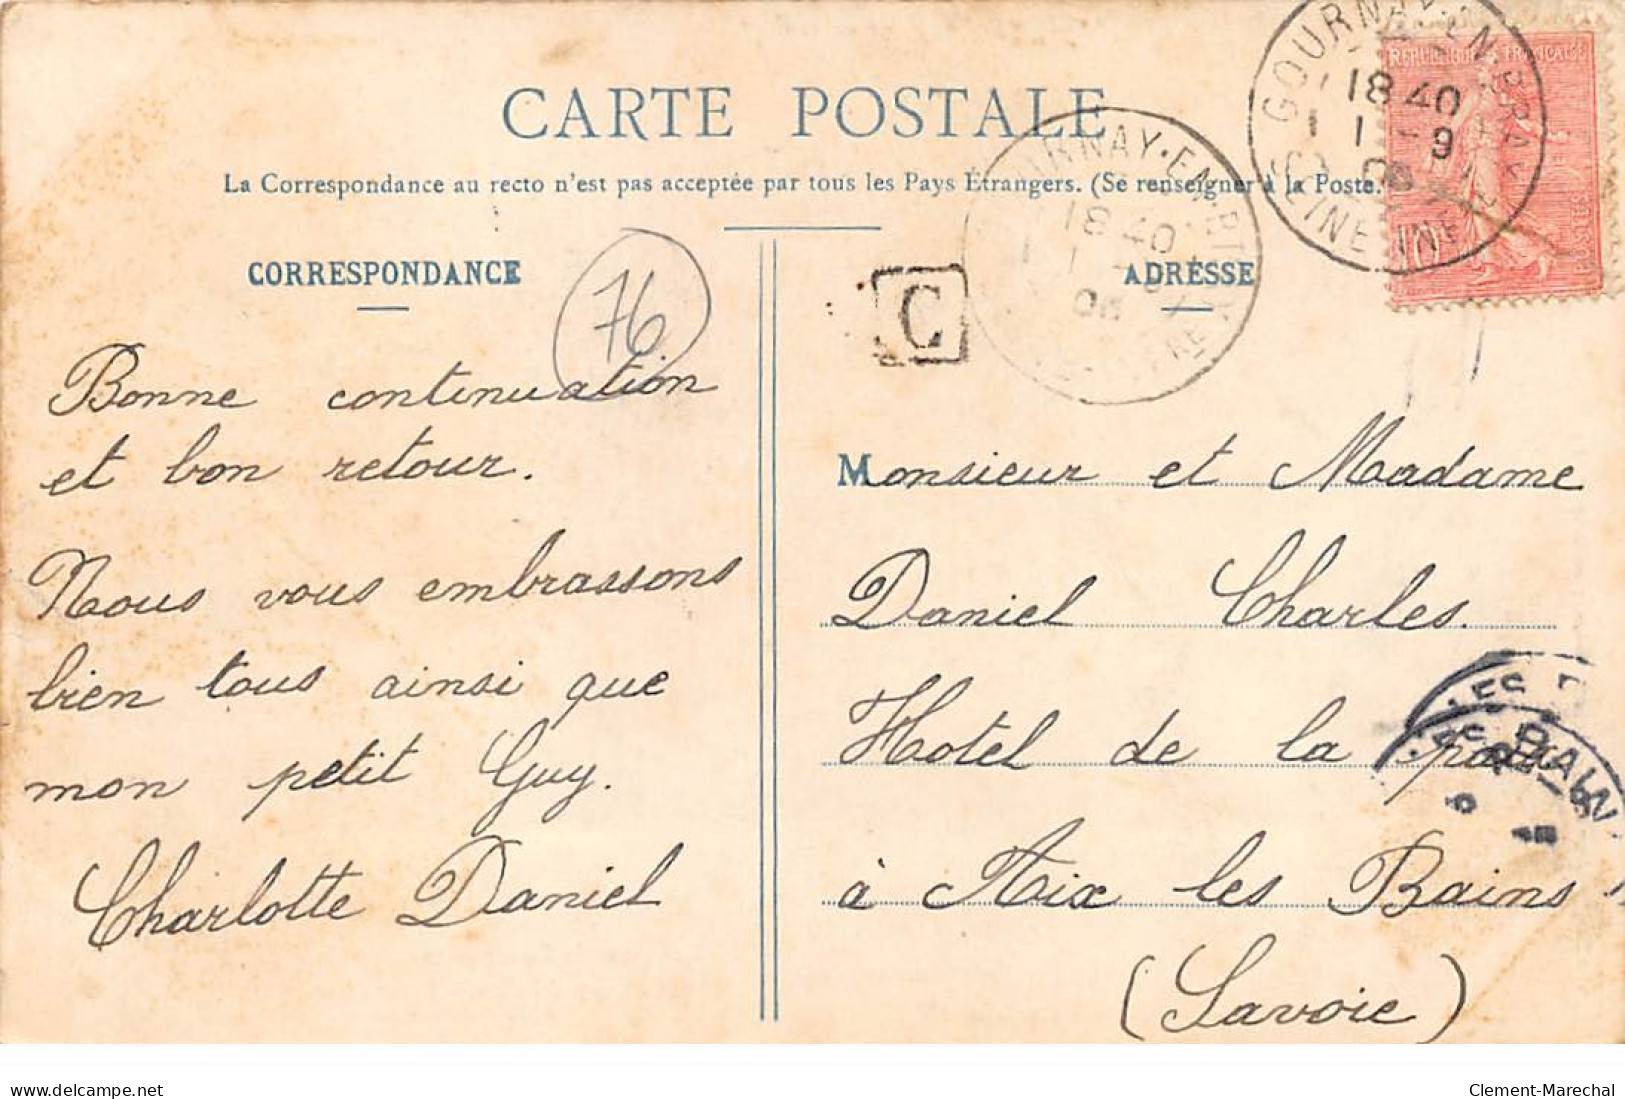 CARTE POSTALE
La Correspondance au recto n'est pas acceptée par tous les Pays Étrangers. (Se renseigner à la Poste.
CORRESPONDANCE
76
Bonne continuation
et bon retour.
Nous vous embrassons
bien tous ainsi que
mon petit Guy.
Charlotte Daniel
C
ADRESSE
Monsieur et Madame
Daniel Charles.
Hotel de la paix
à Aix les Bains
(Savoie)
REPUBLIQUE FRANÇAISE
POSTES
10
GOURNAY-EN-BRAY
18 40
1 - 9
SEINE INFRE
GOURNAY-EN-BRAY
18 40
delcampe.net
Clement-Marechal